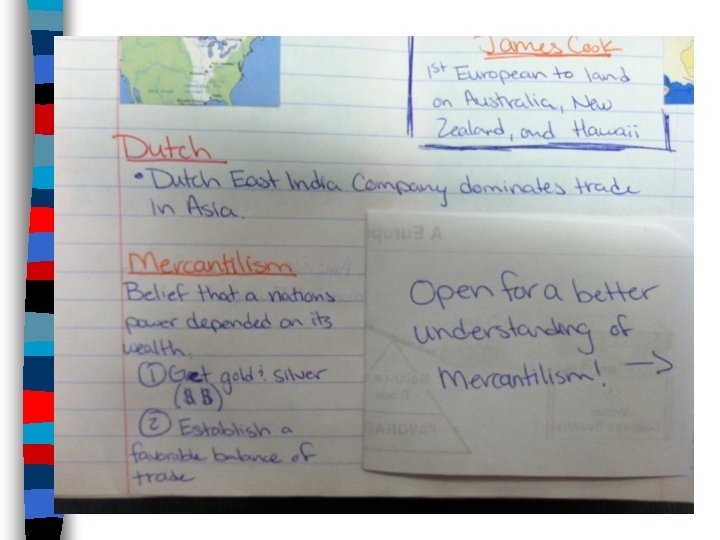 James Cook
1st European to land
on Australia, New
Zealand, and Hawaii
Dutch
• Dutch East India Company dominates trade
in Asia.
Mercantilism
Belief that a nations
power depended on its
wealth.
① Get gold & silver
($ $)
② Establish a
favorable balance of
trade
A Europ
Open for a better
understanding of
Mercantilism! →
Balance
Trade
FAVORAB
Mother